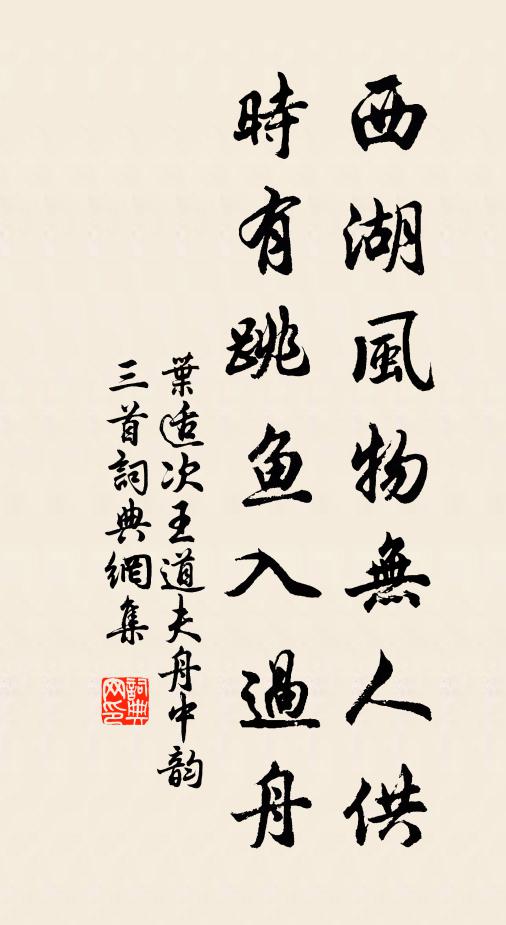 西湖風物無人供
時有跳鱼入過舟
葉适次王道夫舟中韵
三首詞典網集
詞典
网印